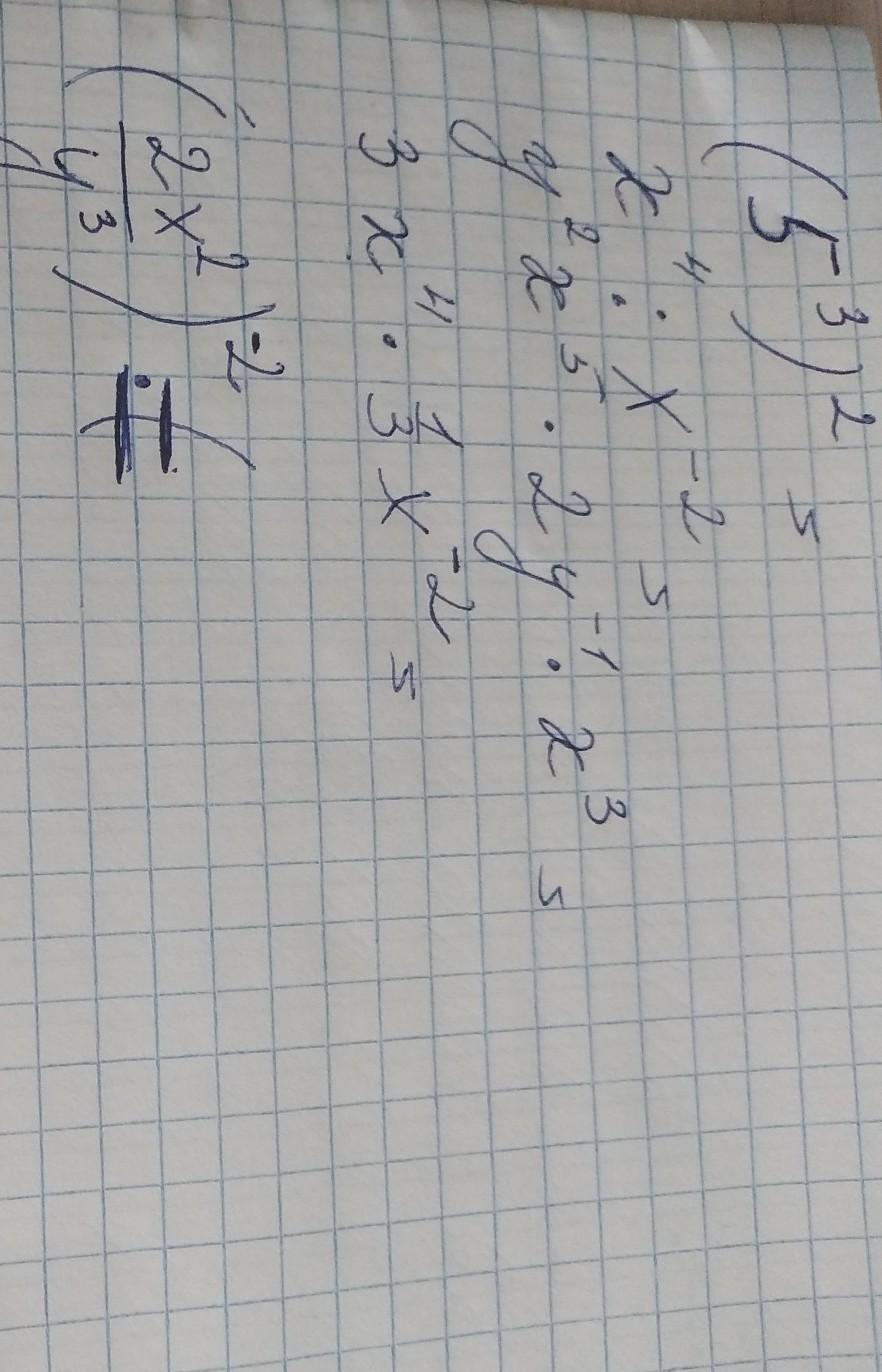 (5⁻³)² =
x⁴ : x⁻² =
y² x⁵ · 2y⁻¹ · x³ =
3x⁴ · 1/3 x⁻² =
(2x²/y³)⁻² =